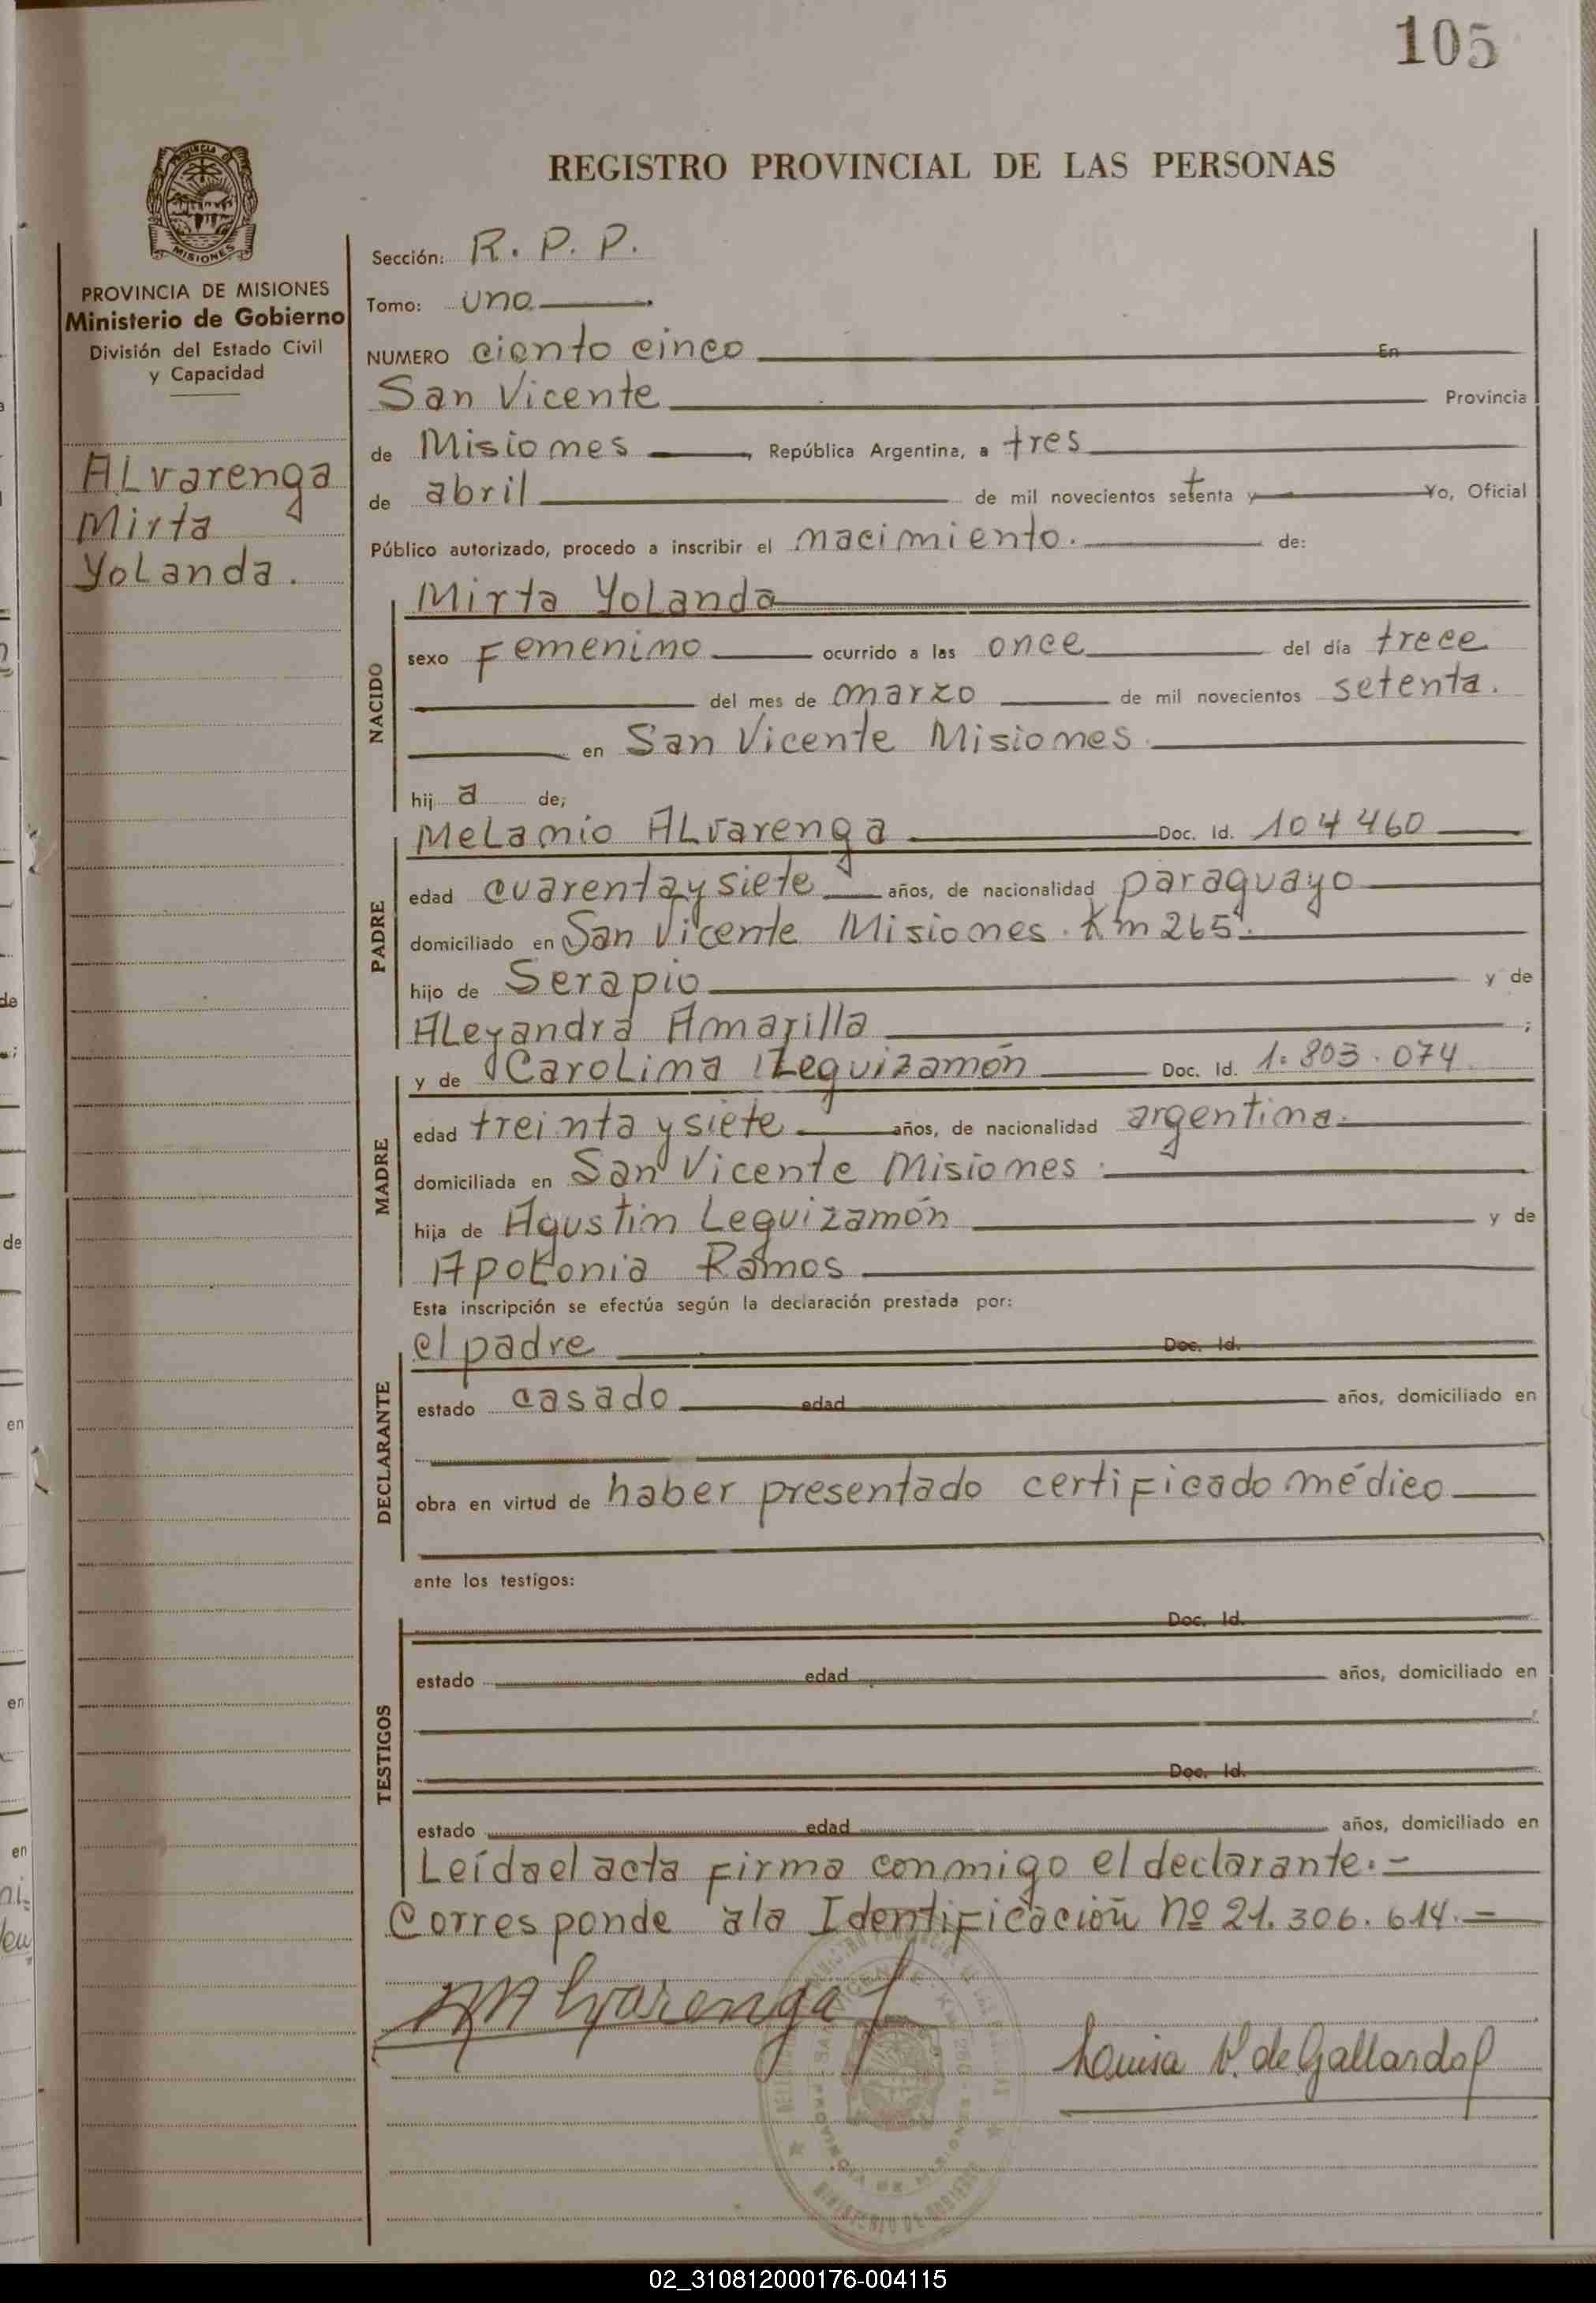 105
REGISTRO PROVINCIAL DE LAS PERSONAS
MISIONES
PROVINCIA DE MISIONES
Ministerio de Gobierno
División del Estado Civil
y Capacidad
ALvarenga
Mirta
YoLanda.
Sección: R. P. P.
Tomo: uno
NUMERO ciento cinco En
San Vicente Provincia
de Misiones, República Argentina, a tres
de abril de mil novecientos setenta y Yo, Oficial
Público autorizado, procedo a inscribir el nacimiento. de:
NACIDO
Mirta YoLanda
sexo Femenino ocurrido a las once del día trece
del mes de marzo de mil novecientos setenta.
en San Vicente Misiones.
hija de;
PADRE
MeLanio ALvarenga Doc. Id. 104460
edad cuarenta y siete años, de nacionalidad paraguayo
domiciliado en San Vicente Misiones. Km 265.
hijo de Serapio y de
ALeyandra Amarilla ;
MADRE
y de CaroLina Leguizamón Doc. Id. 1.803.074
edad treinta y siete años, de nacionalidad argentina.
domiciliada en San Vicente Misiones.
hija de Agustin Leguizamón y de
ApoLonia Ramos
Esta inscripción se efectúa según la declaración prestada por:
DECLARANTE
el padre Doc. Id.
estado casado edad años, domiciliado en
obra en virtud de haber presentado certificado médico
ante los testigos:
TESTIGOS
Doc. Id.
estado edad años, domiciliado en
Doc. Id.
estado edad años, domiciliado en
Leída el acta firma conmigo el declarante.-
Corresponde a la Identificación nº 21.306.614.=
MAlvarenga
Louisa V. de Gallardo
02_310812000176-004115